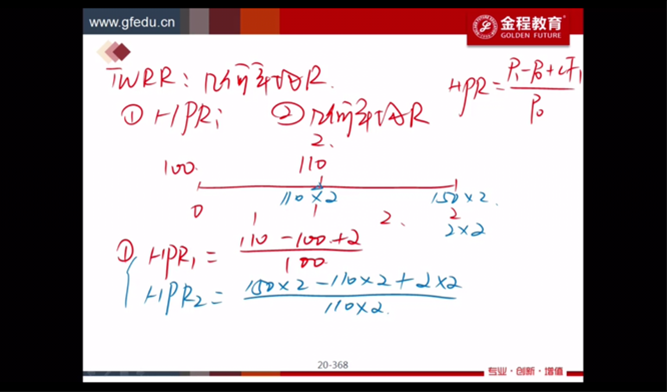 www.gfedu.cn
金程教育
GOLDEN FUTURE
TWRR: 几何平均R.
HPR = P₁-P₀+CF₁ / P₀
① HPRi ② 几何平均R
2.
100. 110
110×2 150×2.
0 1 1 2. 2
2×2
① HPR₁ = 110-100+2 / 100
HPR₂ = 150×2-110×2+2×2 / 110×2.
20-368
专业·创新·增值